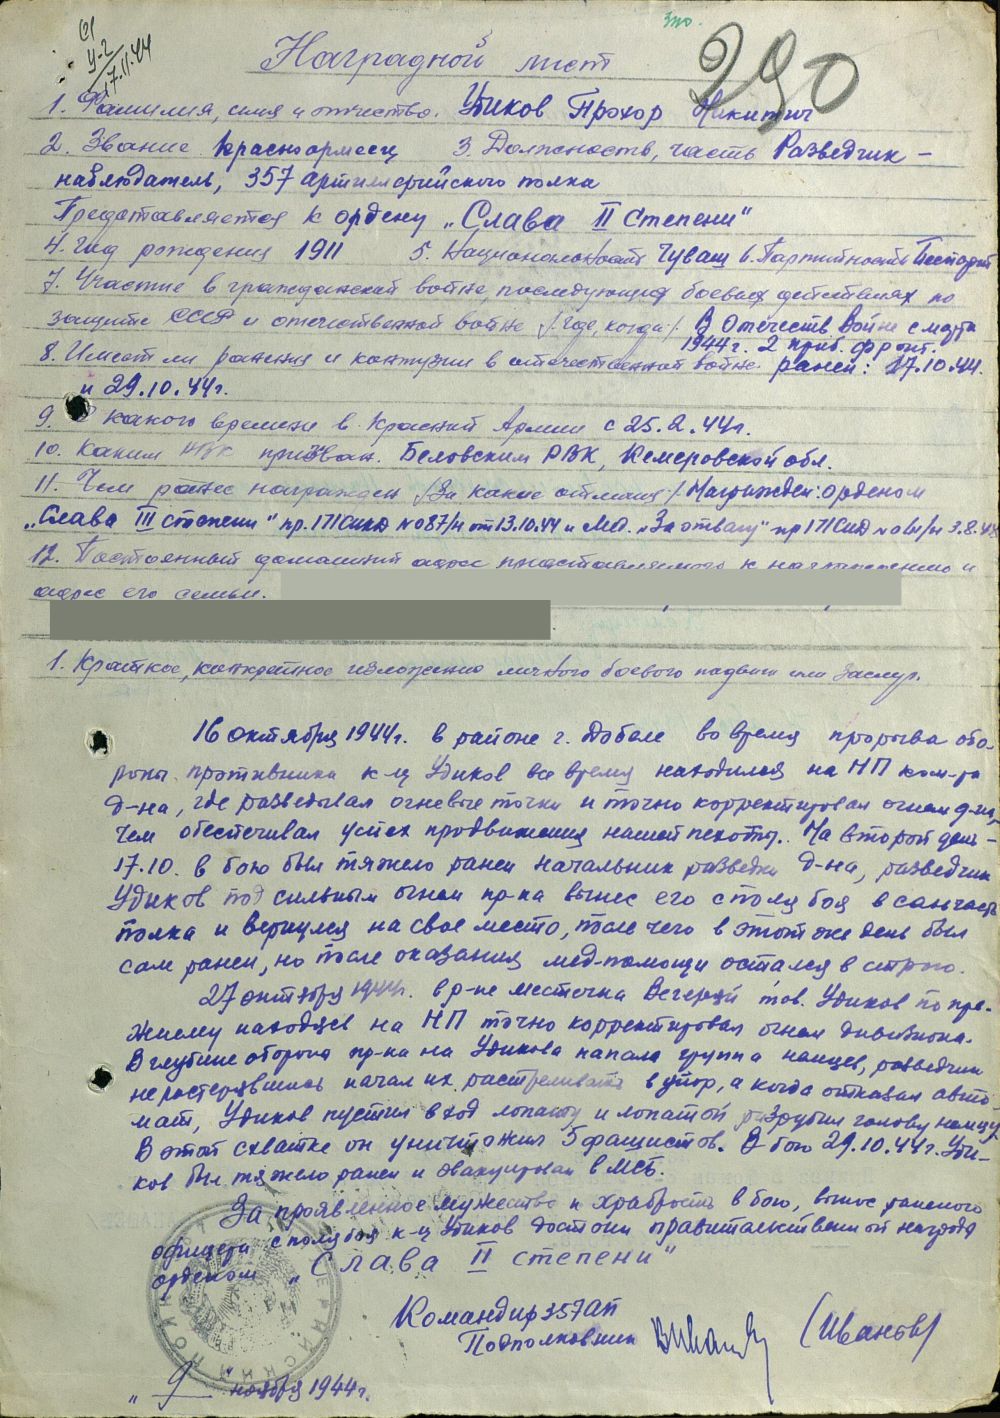 У-2
17.11.44
290
Наградной лист
1. Фамилия, имя и отчество. Удиков Прохор Никитич
2. Звание Красноармеец 3. Должность, часть Разведчик –
наблюдатель, 357 артиллерийского полка
Представляется к ордену „Слава II степени"
4. Год рождения 1911 5. Национальность Чуваш 6. Партийность Беспарт
7. Участие в гражданской войне, последующих боевых действиях по
защите СССР и отечественной войне /где, когда/. В Отечеств войне с марта
1944 г. 2 приб. фронт.
8. Имеет ли ранения и контузии в отечественной войне ранен: 17.10.44.
и 29.10.44г.
9. С какого времени в Красной Армии с 25.2.44г.
10. Каким РВК призван. Беловским РВК, Кемеровской обл.
11. Чем ранее награжден /за какие отличия/. Награжден: орденом
„Слава III степени" пр. 171 сикд №087/н от 13.10.44 и мед. „За отвагу" пр 171 сид 3.8.44
12. Постоянный домашний адрес представляемого к награждению и
адрес его семьи.
1. Краткое, конкретное изложение личного боевого подвига или заслуг.
16 октября 1944г. в районе г. Добеле во время прорыва обо-
роны противника к-ц Удиков все время находился на НП ком-ра
д-на, где разведывал огневые точки и точно корректировал огнем д-на,
чем обеспечивал успех продвижения нашей пехоты. На второй день –
17.10. в бою был тяжело ранен начальник разведки д-на, разведчик
Удиков под сильным огнем пр-ка вынес его с поля боя в санчасть
полка и вернулся на свое место, после чего в этот же день был
сам ранен, но после оказания мед-помощи остался в строю.
27 октября 1944г. в р-не местечка Вегеряй тов. Удиков по пре-
жнему находясь на НП точно корректировал огнем дивизиона.
В глубине обороны пр-ка на Удикова напала группа немцев, разведчик
не растерявшись начал их расстреливать в упор, а когда отказал авто-
мат, Удиков пустил в ход лопату и лопатой разрубил голову немцу
В этой схватке он уничтожил 5 фашистов. В бою 29.10.44г. Уди-
ков был тяжело ранен и эвакуирован в МСБ.
За проявленное мужество и храбрость в бою, вынос раненого
офицера с поля боя к-ц Удиков достоин правительственной награды
орденом „Слава II степени"
Командир 357 ап
Подполковник (Иванов)
„ 9 " ноября 1944г.